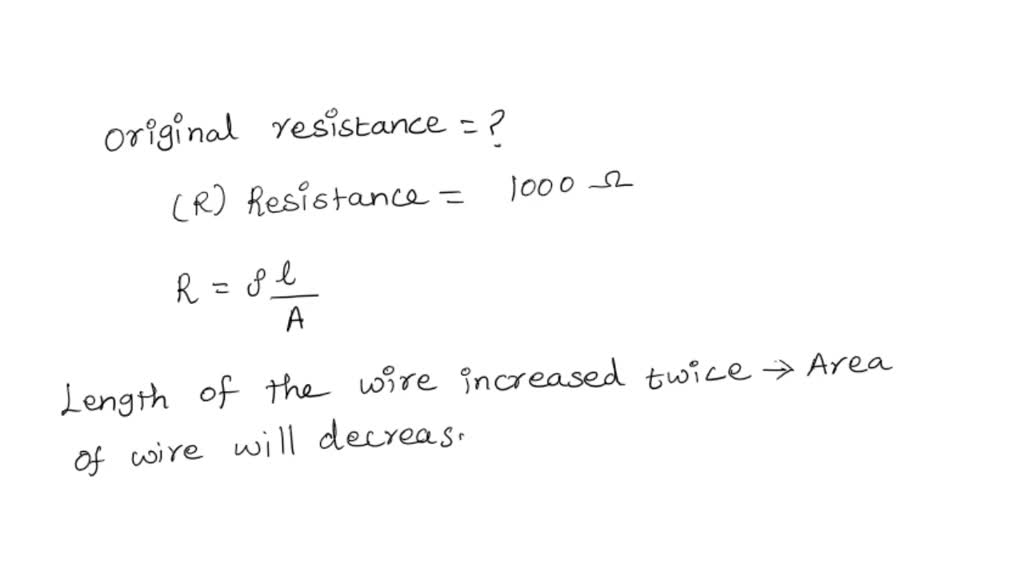 original resistance = ?
(R) Resistance = 1000 Ω
R = ρ l / A
Length of the wire increased twice → Area
of wire will decreas.